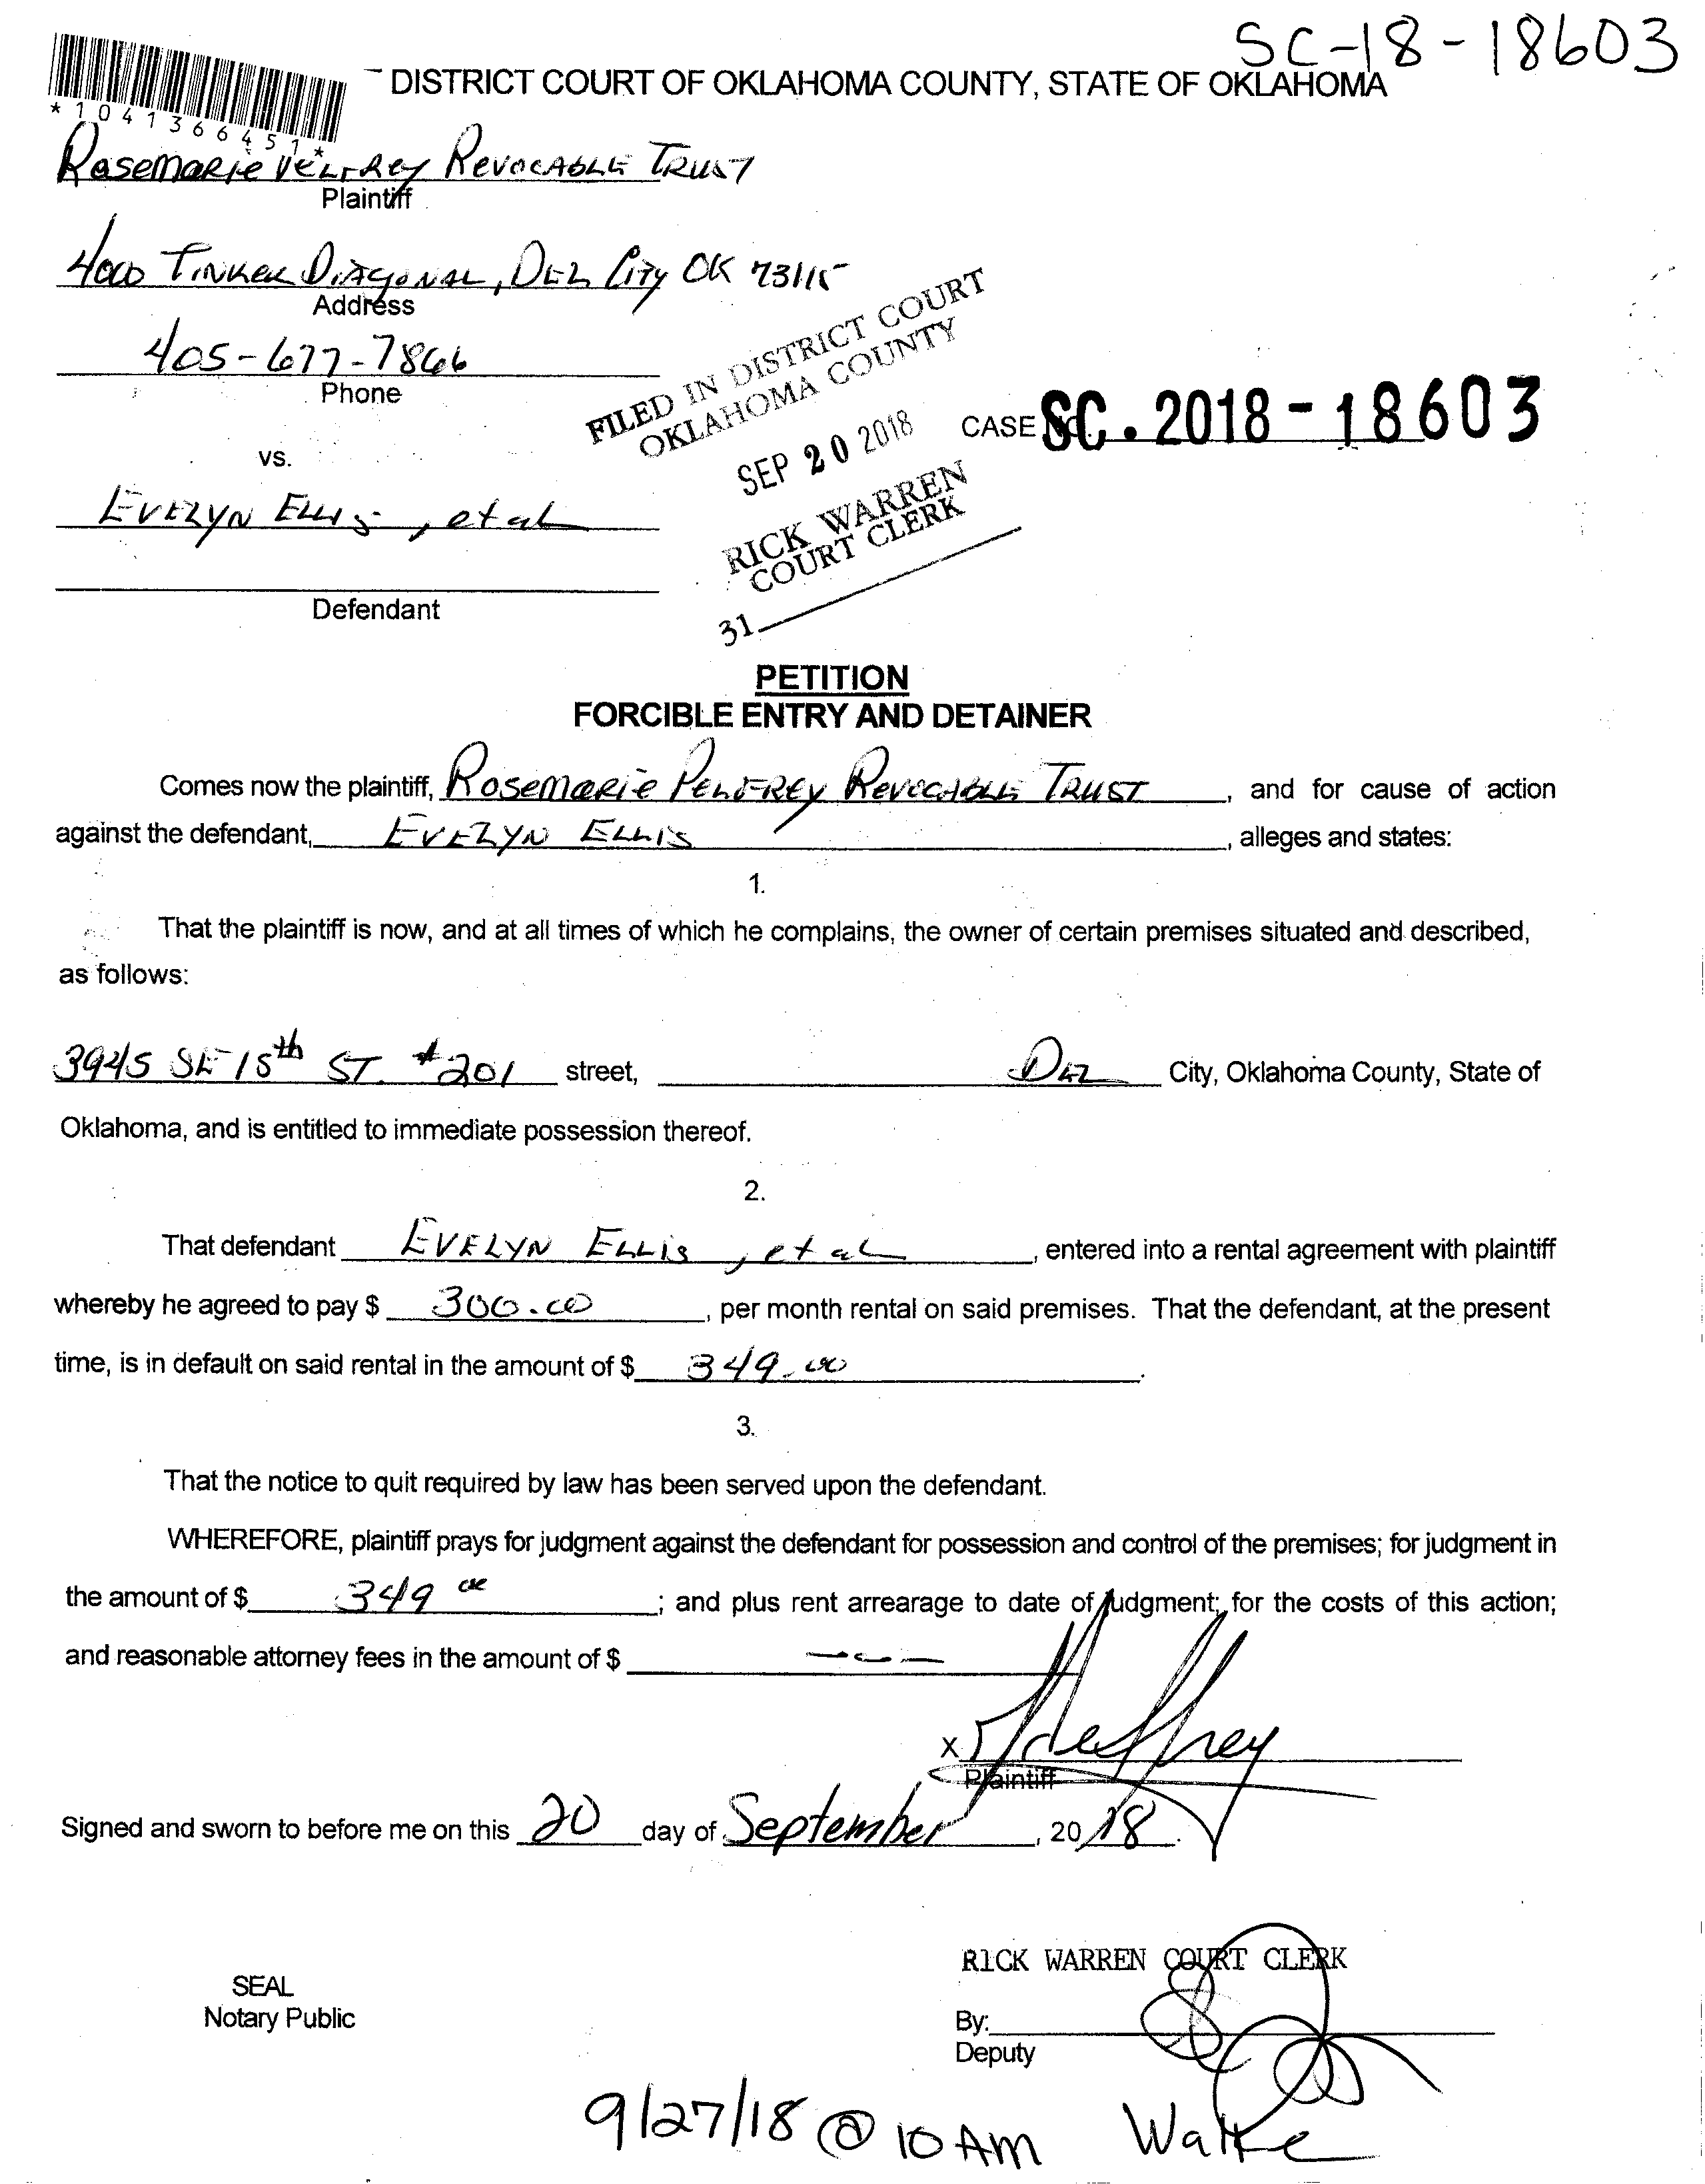 SC-18-18603
DISTRICT COURT OF OKLAHOMA COUNTY, STATE OF OKLAHOMA
*1041366451*
Rosemarie Pelfrey Revocable Trust
Plaintiff
4000 Tinker Diagonal, Del City OK 73115
Address
405-677-7866
Phone
FILED IN DISTRICT COURT
OKLAHOMA COUNTY
SEP 20 2018
RICK WARREN
COURT CLERK
31
CASE NO. SC. 2018-18603
vs.
Evelyn Ellis, et al
Defendant
PETITION
FORCIBLE ENTRY AND DETAINER
Comes now the plaintiff, Rosemarie Pelfrey Revocable Trust, and for cause of action
against the defendant, Evelyn Ellis, alleges and states:
1.
That the plaintiff is now, and at all times of which he complains, the owner of certain premises situated and described,
as follows:
3945 SE 15th ST. #201 street, Del City, Oklahoma County, State of
Oklahoma, and is entitled to immediate possession thereof.
2.
That defendant Evelyn Ellis, et al, entered into a rental agreement with plaintiff
whereby he agreed to pay $ 300.00, per month rental on said premises. That the defendant, at the present
time, is in default on said rental in the amount of $ 349.00.
3.
That the notice to quit required by law has been served upon the defendant.
WHEREFORE, plaintiff prays for judgment against the defendant for possession and control of the premises; for judgment in
the amount of $ 349 00; and plus rent arrearage to date of judgment; for the costs of this action;
and reasonable attorney fees in the amount of $ ---
X
Plaintiff
Signed and sworn to before me on this 20 day of September, 2018.
RICK WARREN COURT CLERK
SEAL
Notary Public
By:
Deputy
9/27/18 @ 10 AM